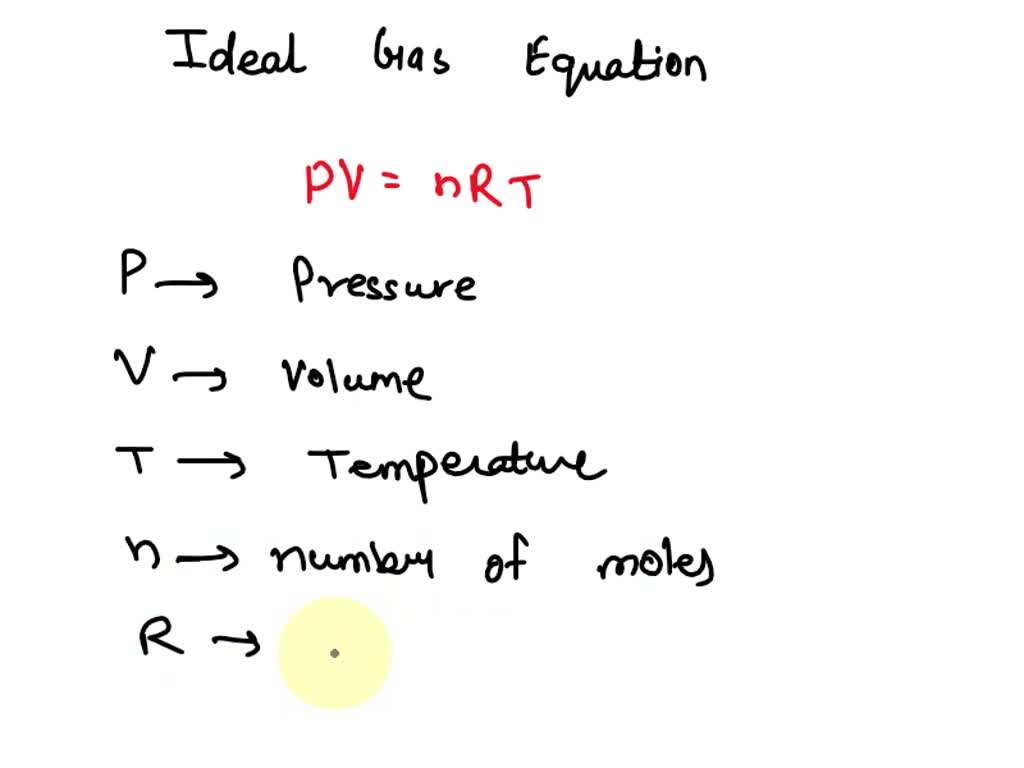 Ideal Gas Equation
PV = nRT
P → Pressure
V → Volume
T → Temperature
n → number of moles
R →